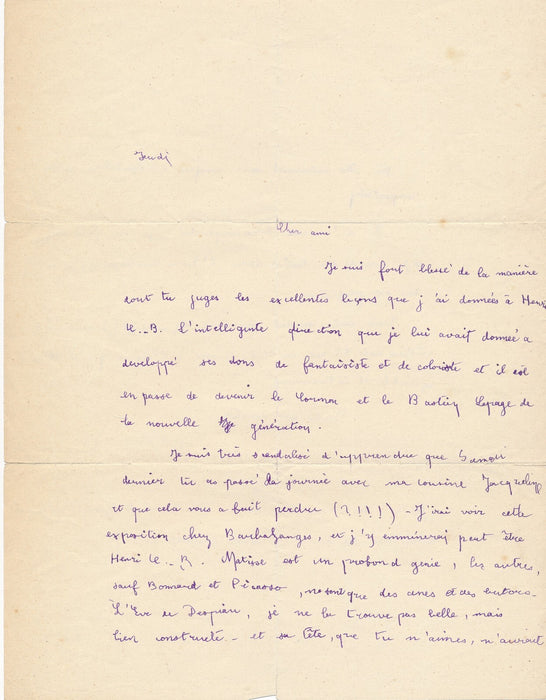 Jeudi
Cher ami
Je suis fort blessé de la manière
dont tu juges les excellentes leçons que j'ai données à Henri
le. B. L'intelligente direction que je lui avait donnée a
developpé ses dons de fantaisiste et de coloriste et il est
en passe de devenir le Cormon et le Bastien Lepage de
la nouvelle génération.
Je suis très scandalisé d'apprendre que Samedi
dernier tu as passé la journée avec ma cousine Jacqueline
et que cela vous a fait perdre (?!!!) - J'irai voir cette
exposition chez Barbazanges, et j'y emmènerai peut être
Henri le. B. Matisse est un profond génie, les autres,
sauf Bonnard et Picasso, ne sont que des anes et des butors.
L'Eve de Despiau, je ne la trouve pas belle, mais
bien construite - et sa tête, que tu n'aimes, n'aurait